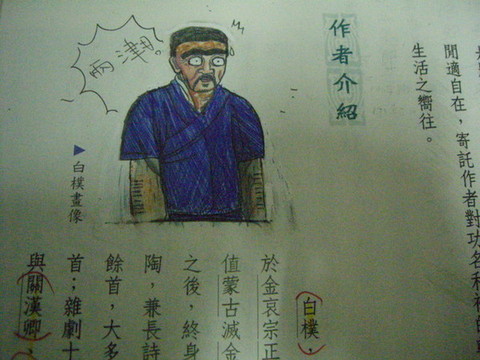 閒適自在，寄託作者對功名利祿的
生活之嚮往。
作者介紹
兩津
▶白樸畫像
白樸，
於金哀宗正
值蒙古滅金
之後，終身
陶，兼長詩
餘首，大多
首；雜劇十
與關漢卿、